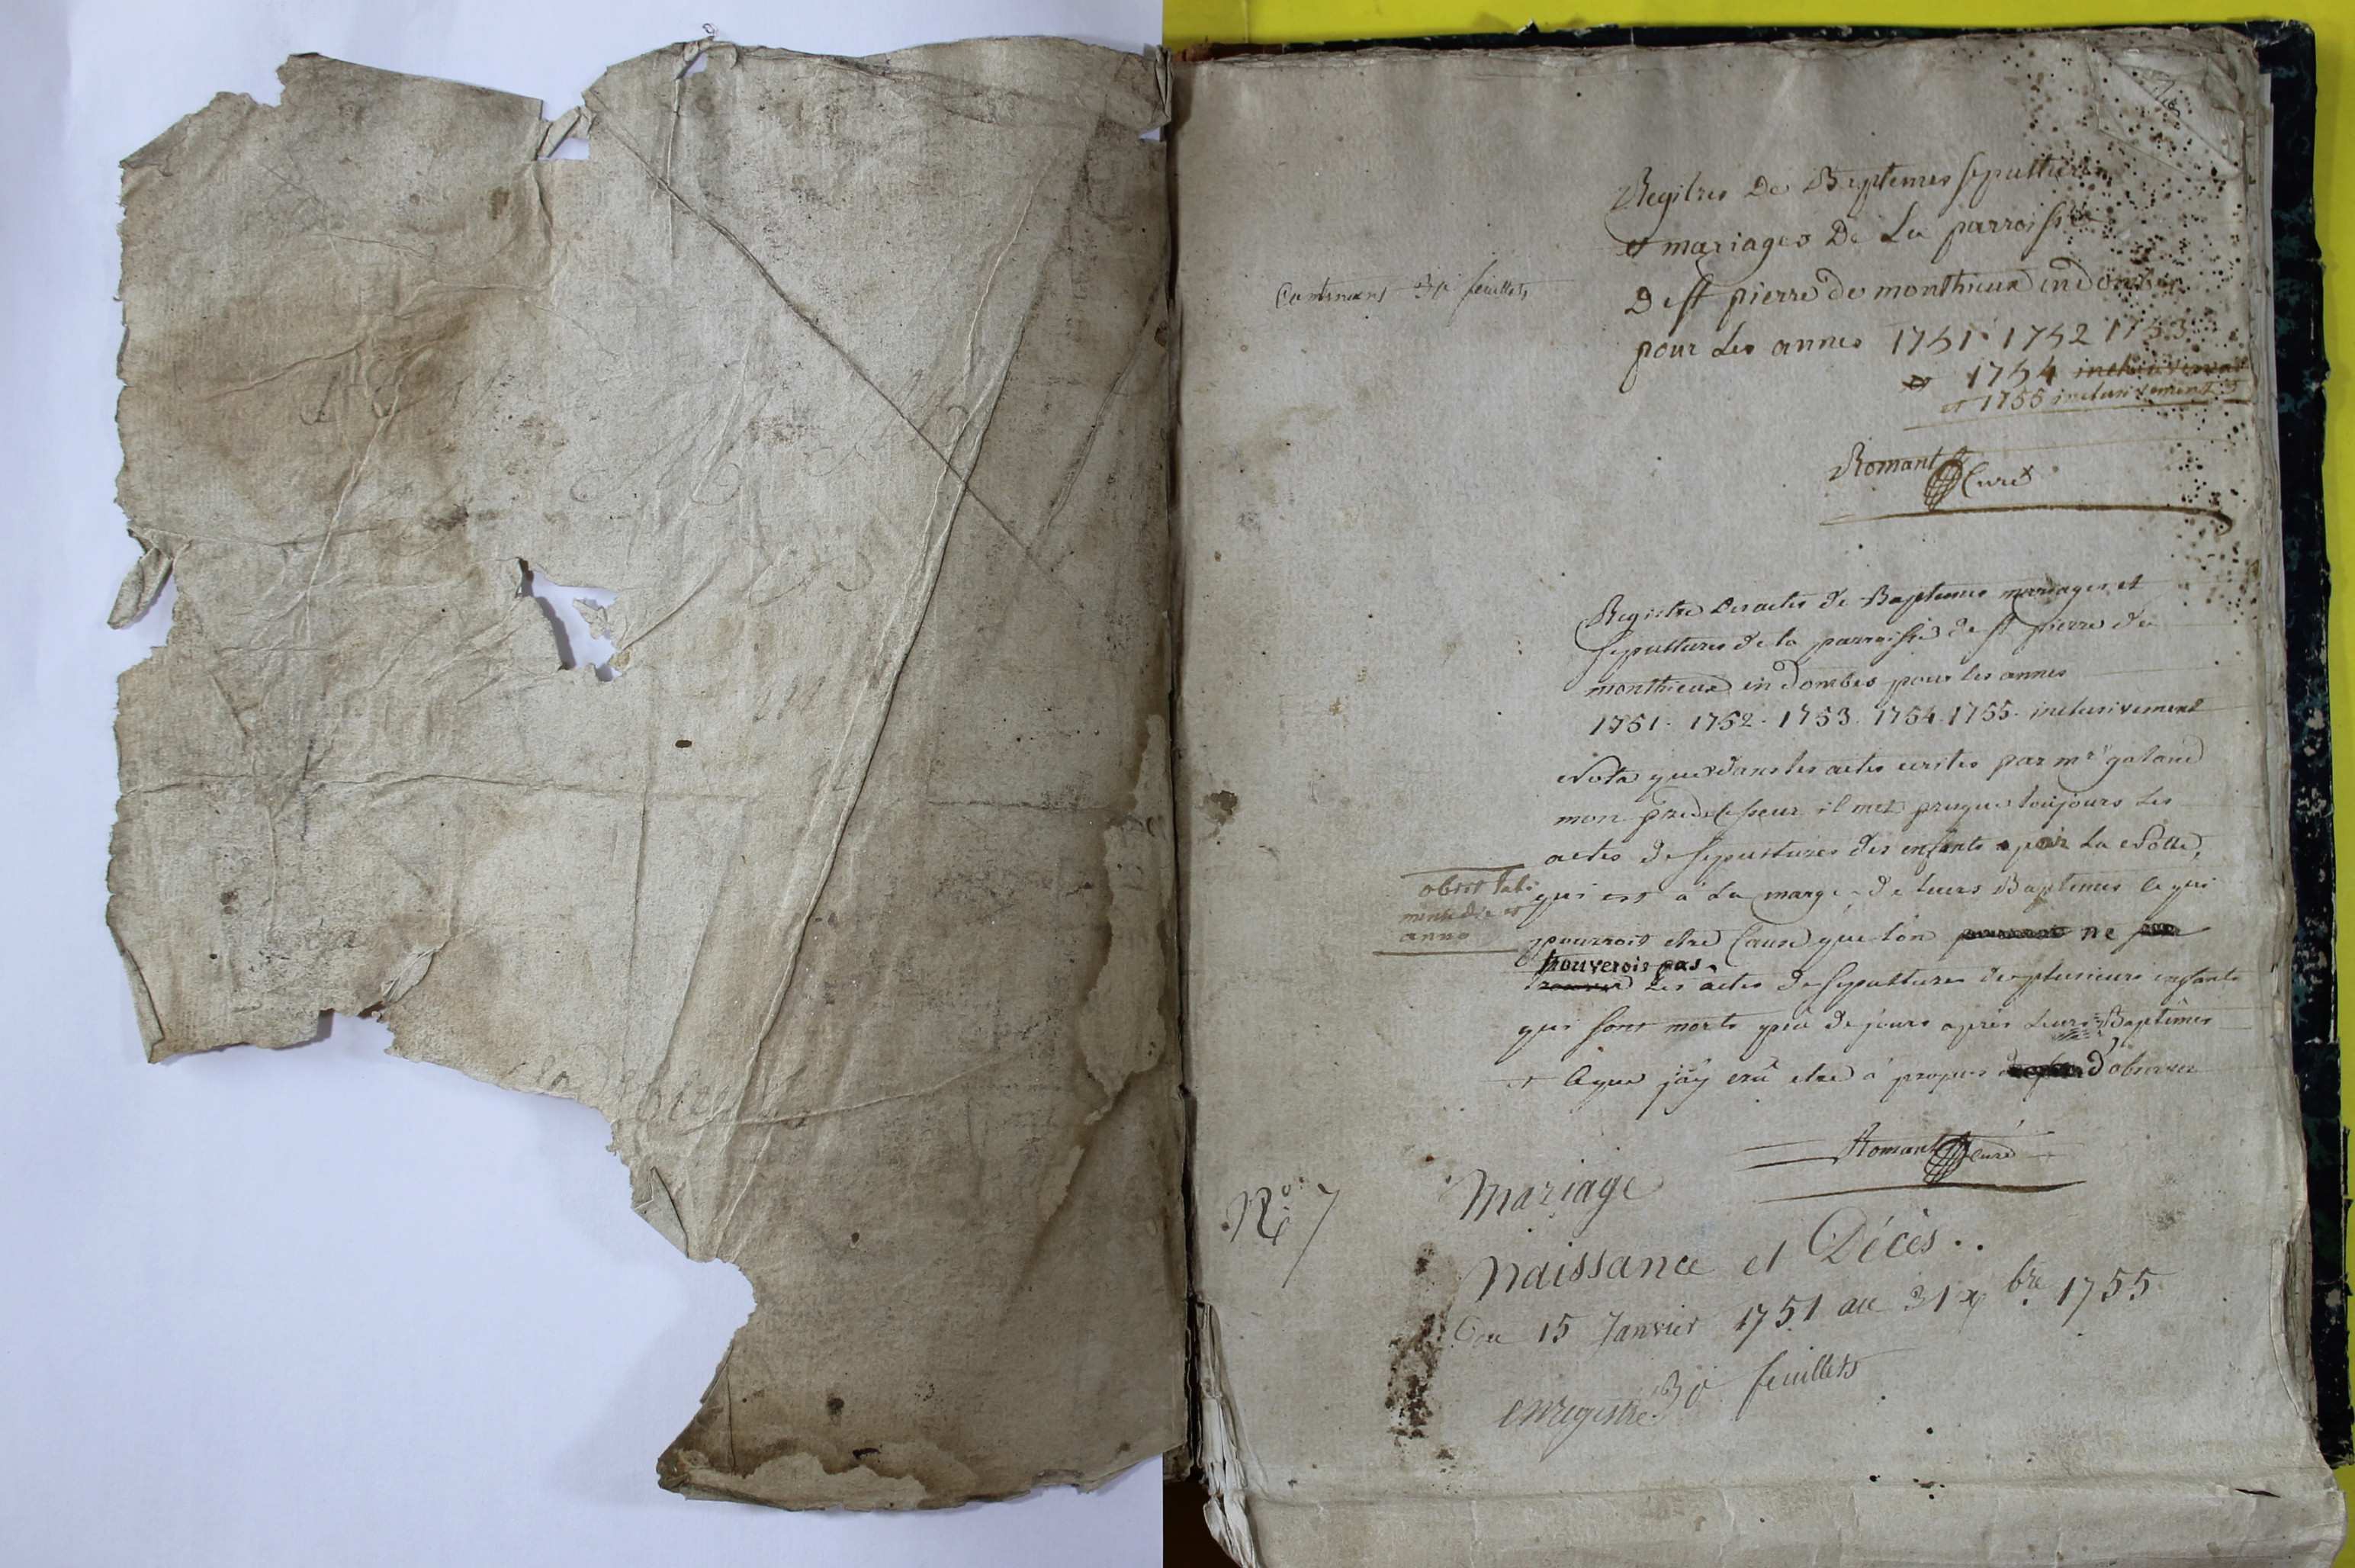 Registres De Baptemes sepultures
et mariages De La parroisse
De st pierre de monthieux en dombes
Contenant 30 feuillets
pour Les annes 1751 · 1752 1753
et 1754 inclusivement
et 1755 inclusivement
Romant Curé
Registre Des actes de Baptemes mariages et
sepultures de la parroisse de st pierre de
monthieux en Dombes pour les annes
1751 · 1752 · 1753 · 1754 · 1755 · inclusivement
Nota que dans les actes ecrites par mr galand
mon predecesseur il met presque toujours Les
actes de sepultures des enfants par La Notte,
qui est a La marge de leurs Baptemes ce qui
obiit
die et
anno
pourroit etre Cause que l'on ne
trouverois pas
Les actes de sepultures de plusieurs enfants
qui sont morts peu de jours après Leurs Baptêmes
et Ce que j'ay crû etre a propos d'observer
Romant curé
No 7
Mariage
Naissance et Décès..
Du 15 Janvier 1751 au 31 xbre 1755
enregistré 30 feuillets